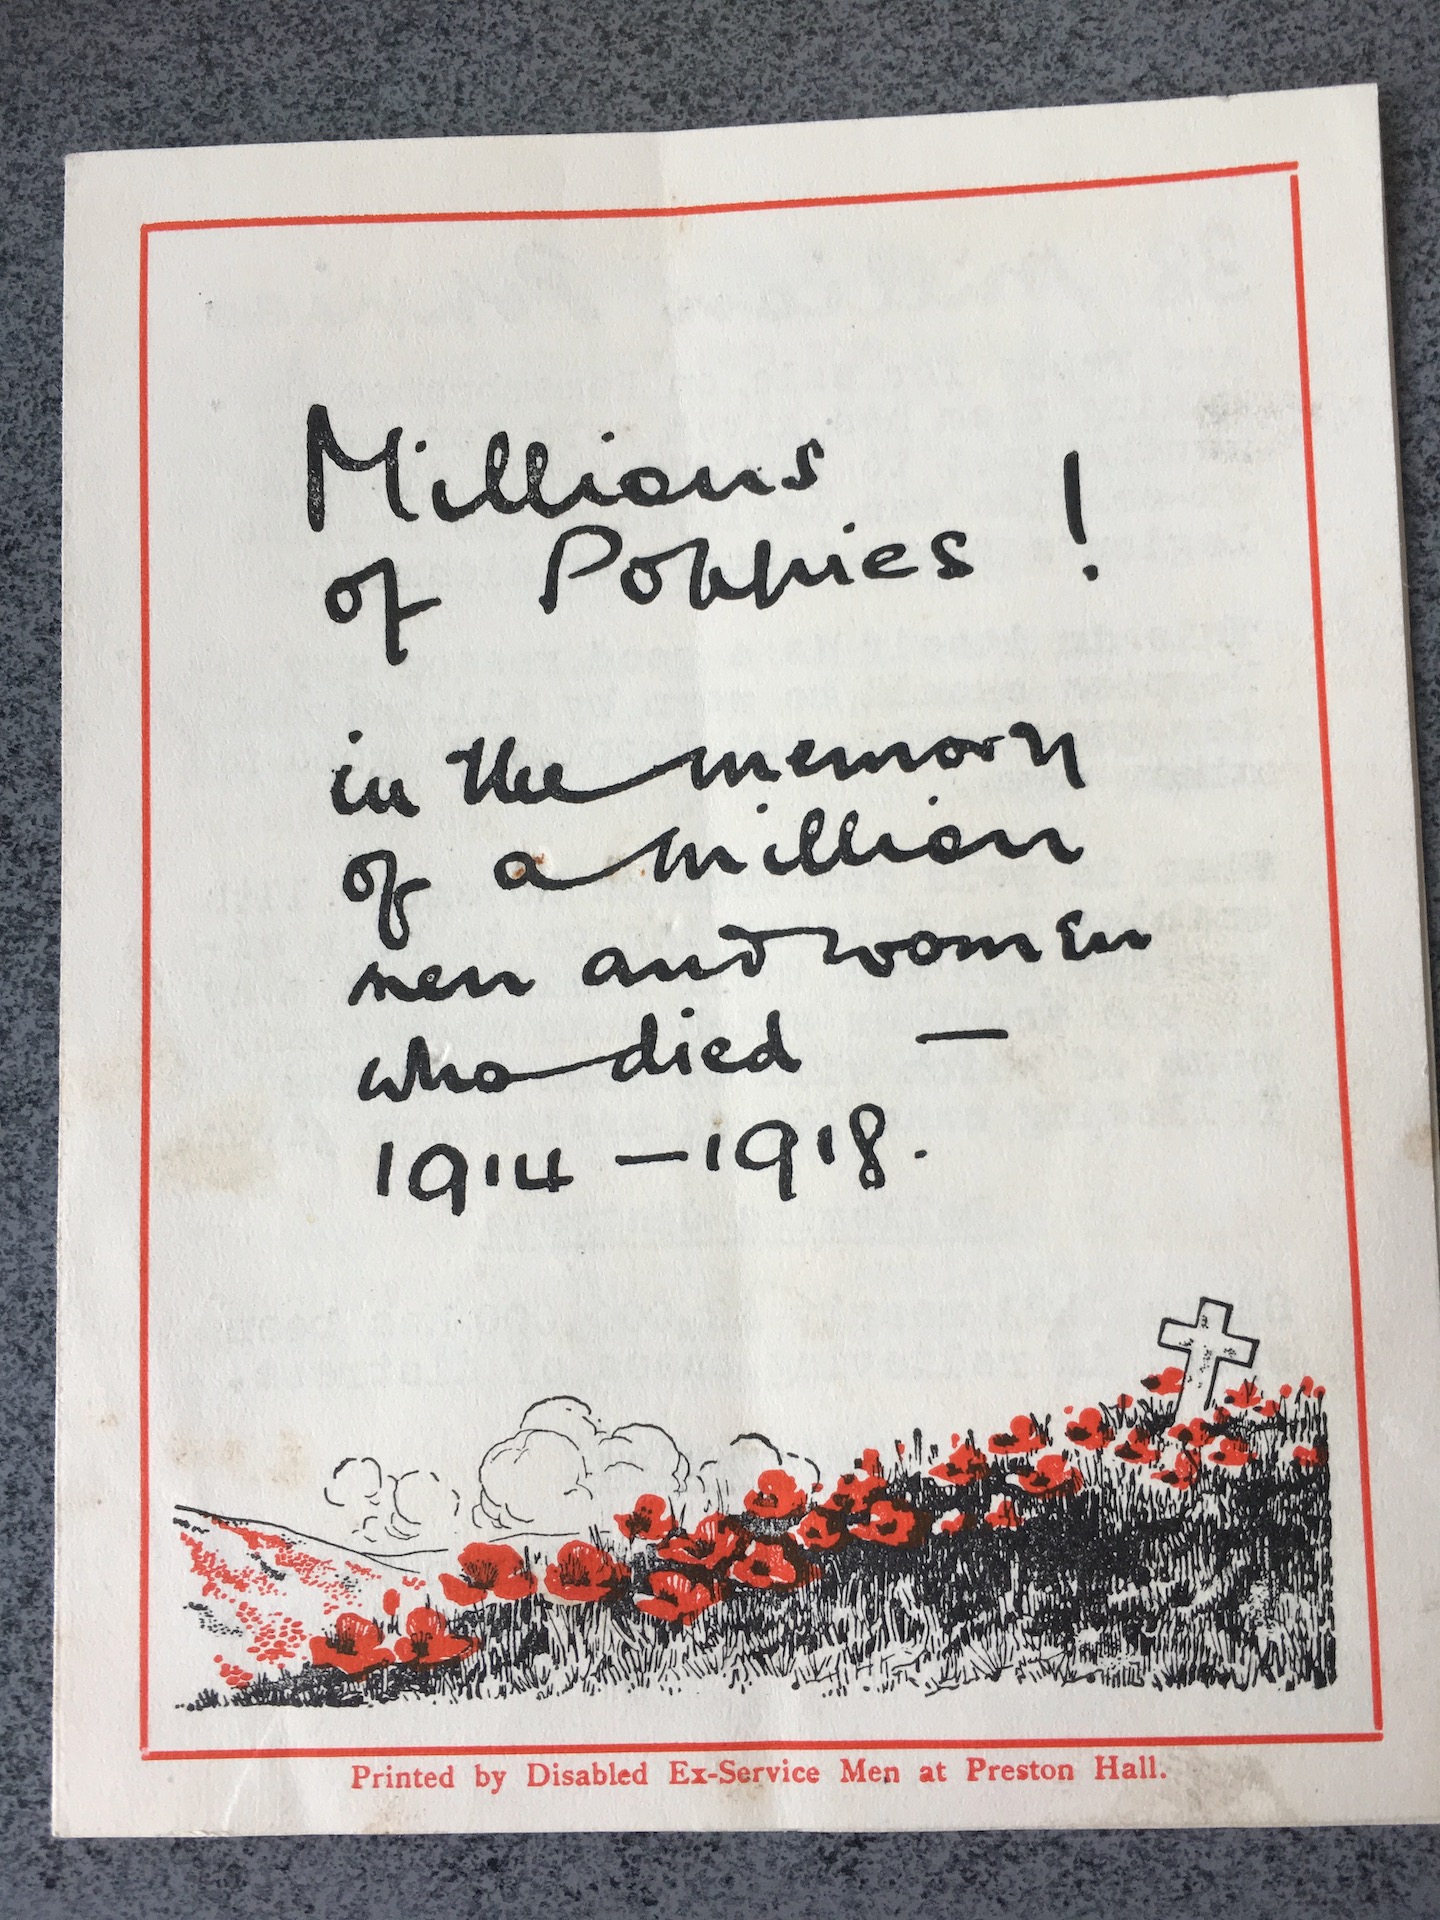 Millions
of Poppies !
in the memory
of a million
men and women
who died —
1914 – 1918.
Printed by Disabled Ex-Service Men at Preston Hall.